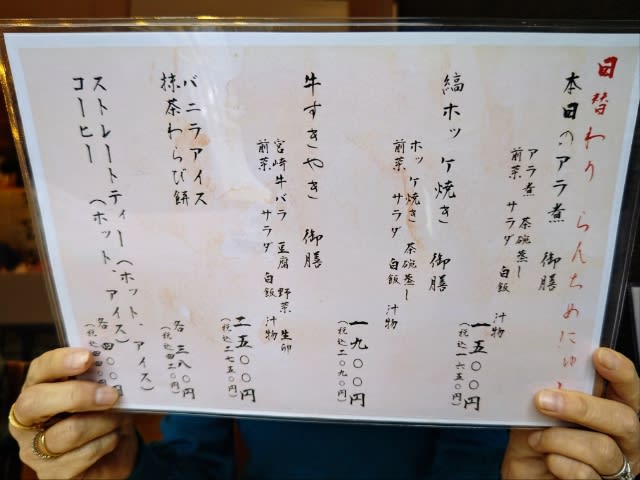 日替わり らんちめにゅー
本日のアラ煮 御膳
アラ煮 茶碗蒸し
前菜 サラダ 白飯 汁物
一五〇〇円
（税込一六五〇円）
縞ホッケ焼き 御膳
ホッケ焼き 茶碗蒸し
前菜 サラダ 白飯 汁物
一九〇〇円
（税込二〇九〇円）
牛すきやき 御膳
宮崎牛バラ 豆腐 野菜 生卵
前菜 サラダ 白飯 汁物
二五〇〇円
（税込二七五〇円）
バニラアイス
抹茶わらび餅
各 三八〇円
（税込四二〇円）
ストレートティー（ホット、アイス）
コーヒー （ホット、アイス）
各 四〇〇円
（税込四四〇円）